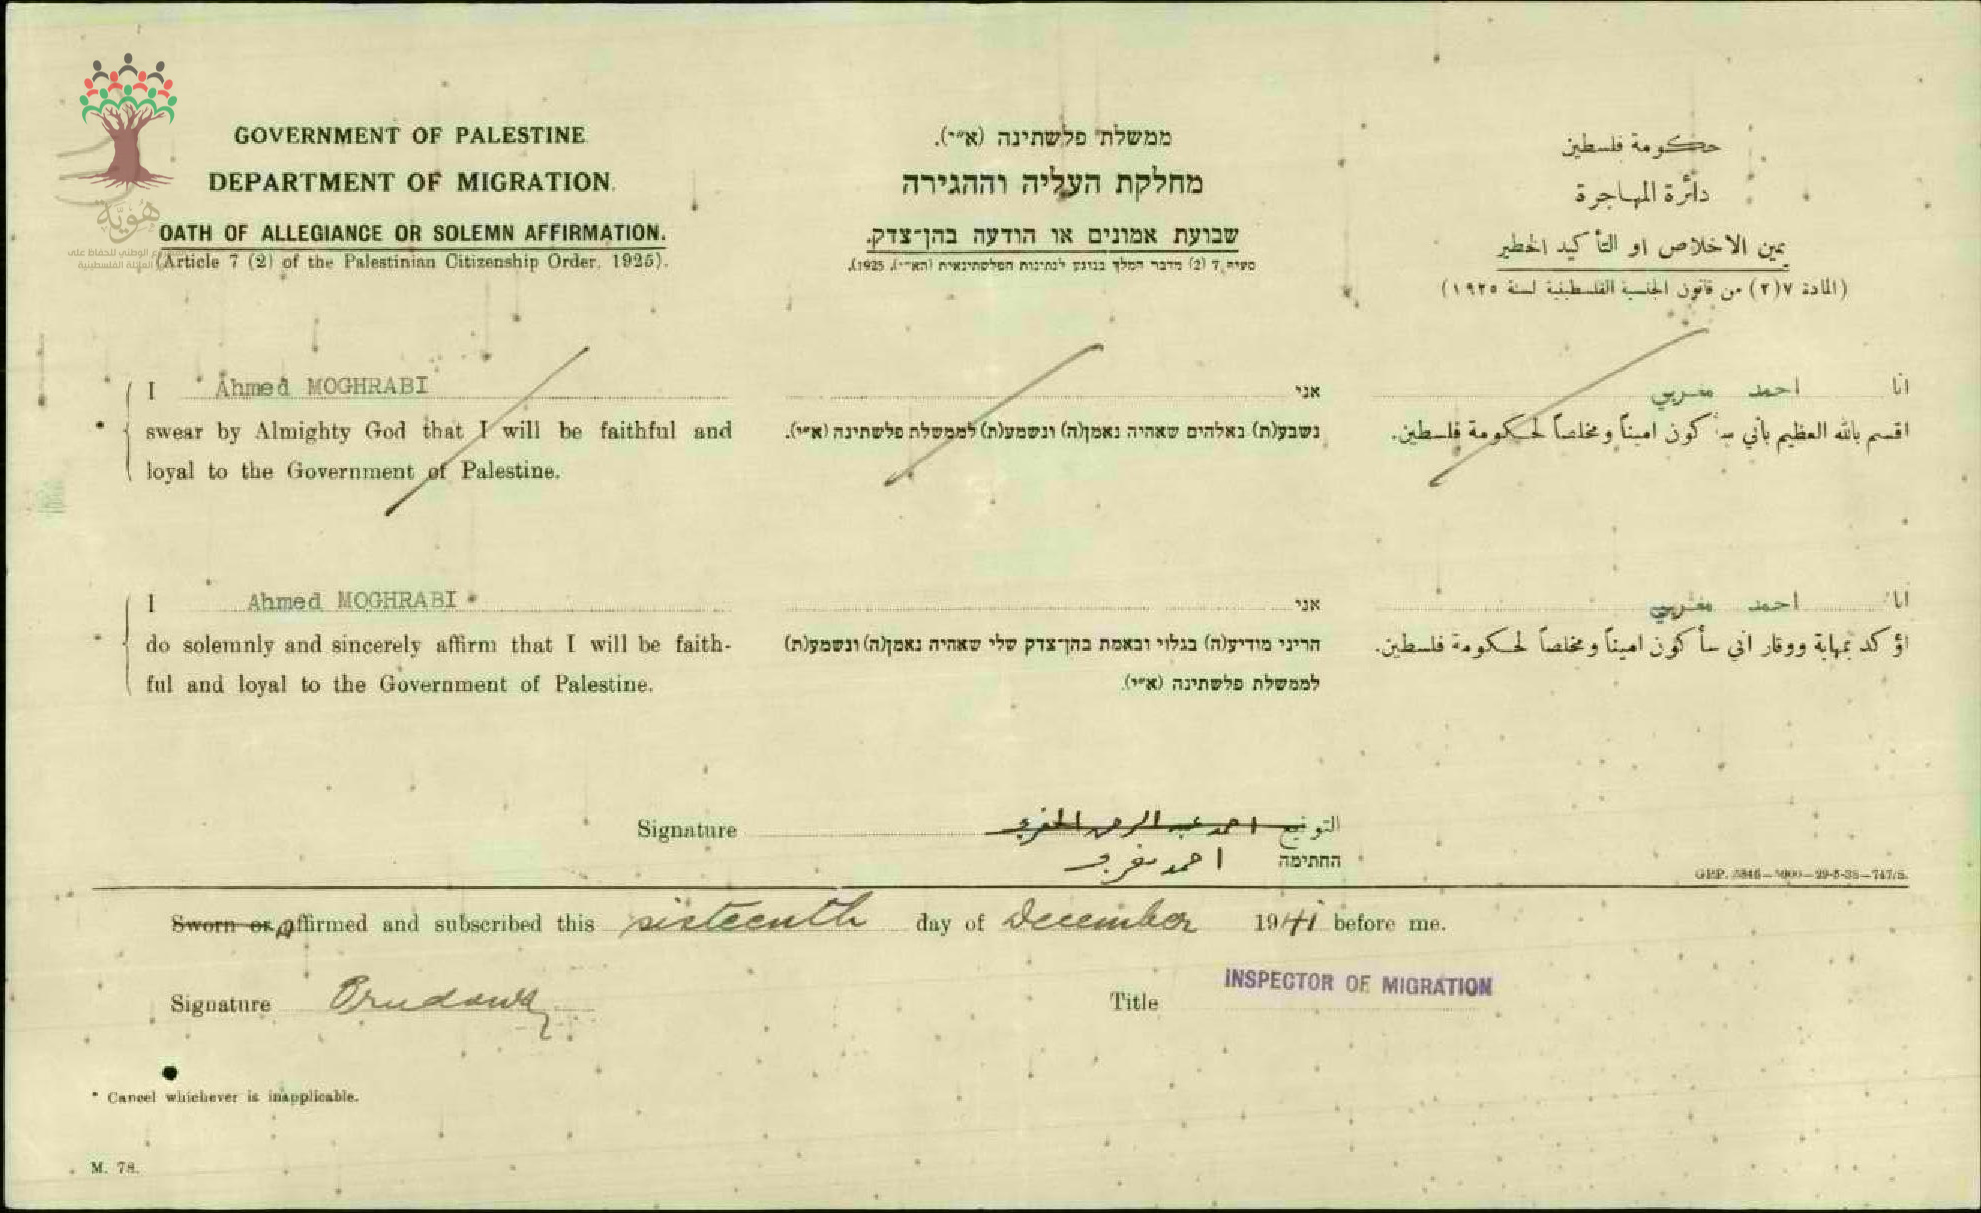 GOVERNMENT OF PALESTINE
DEPARTMENT OF MIGRATION.
OATH OF ALLEGIANCE OR SOLEMN AFFIRMATION.
(Article 7 (2) of the Palestinian Citizenship Order, 1925).
ממשלת פלשתינה (א״י).
מחלקת העליה וההגירה
שבועת אמונים או הודעה בהן־צדק.
סעיף 7 (2) מדבר המלך בנוגע לנתינות הפלשתינאית (הא״י), 1925).
حكومة فلسطين
دائرة المهاجرة
يمين الاخلاص او التأكيد الخطير
(المادة ٧(٢) من قانون الجنسية الفلسطينية لسنة ١٩٢٥)
هُويّة
الوطني للحفاظ على
العائلة الفلسطينية
* I Ahmed MOGHRABI
swear by Almighty God that I will be faithful and
loyal to the Government of Palestine.
אני
נשבע(ת) באלהים שאהיה נאמן(ה) ונשמע(ת) לממשלת פלשתינה (א״י).
انا احمد مغربي
اقسم بالله العظيم بأني سأكون اميناً ومخلصاً لحكومة فلسطين.
* I Ahmed MOGHRABI
do solemnly and sincerely affirm that I will be faith-
ful and loyal to the Government of Palestine.
אני
הריני מודיע(ה) בגלוי ובאמת בהן־צדק שלי שאהיה נאמן(ה) ונשמע(ת)
לממשלת פלשתינה (א״י).
انا احمد مغربي
اؤكد بمهابة ووقار اني سأكون اميناً ومخلصاً لحكومة فلسطين.
Signature احمد عبد الرحمن المغربي التوقيع
احمد مغربي החתימה
G.P.P. 5846—5000—29-5-38—747/S.
Sworn or affirmed and subscribed this sisteenth day of December 1941 before me.
Signature
Title INSPECTOR OF MIGRATION
* Cancel whichever is inapplicable.
M. 78.